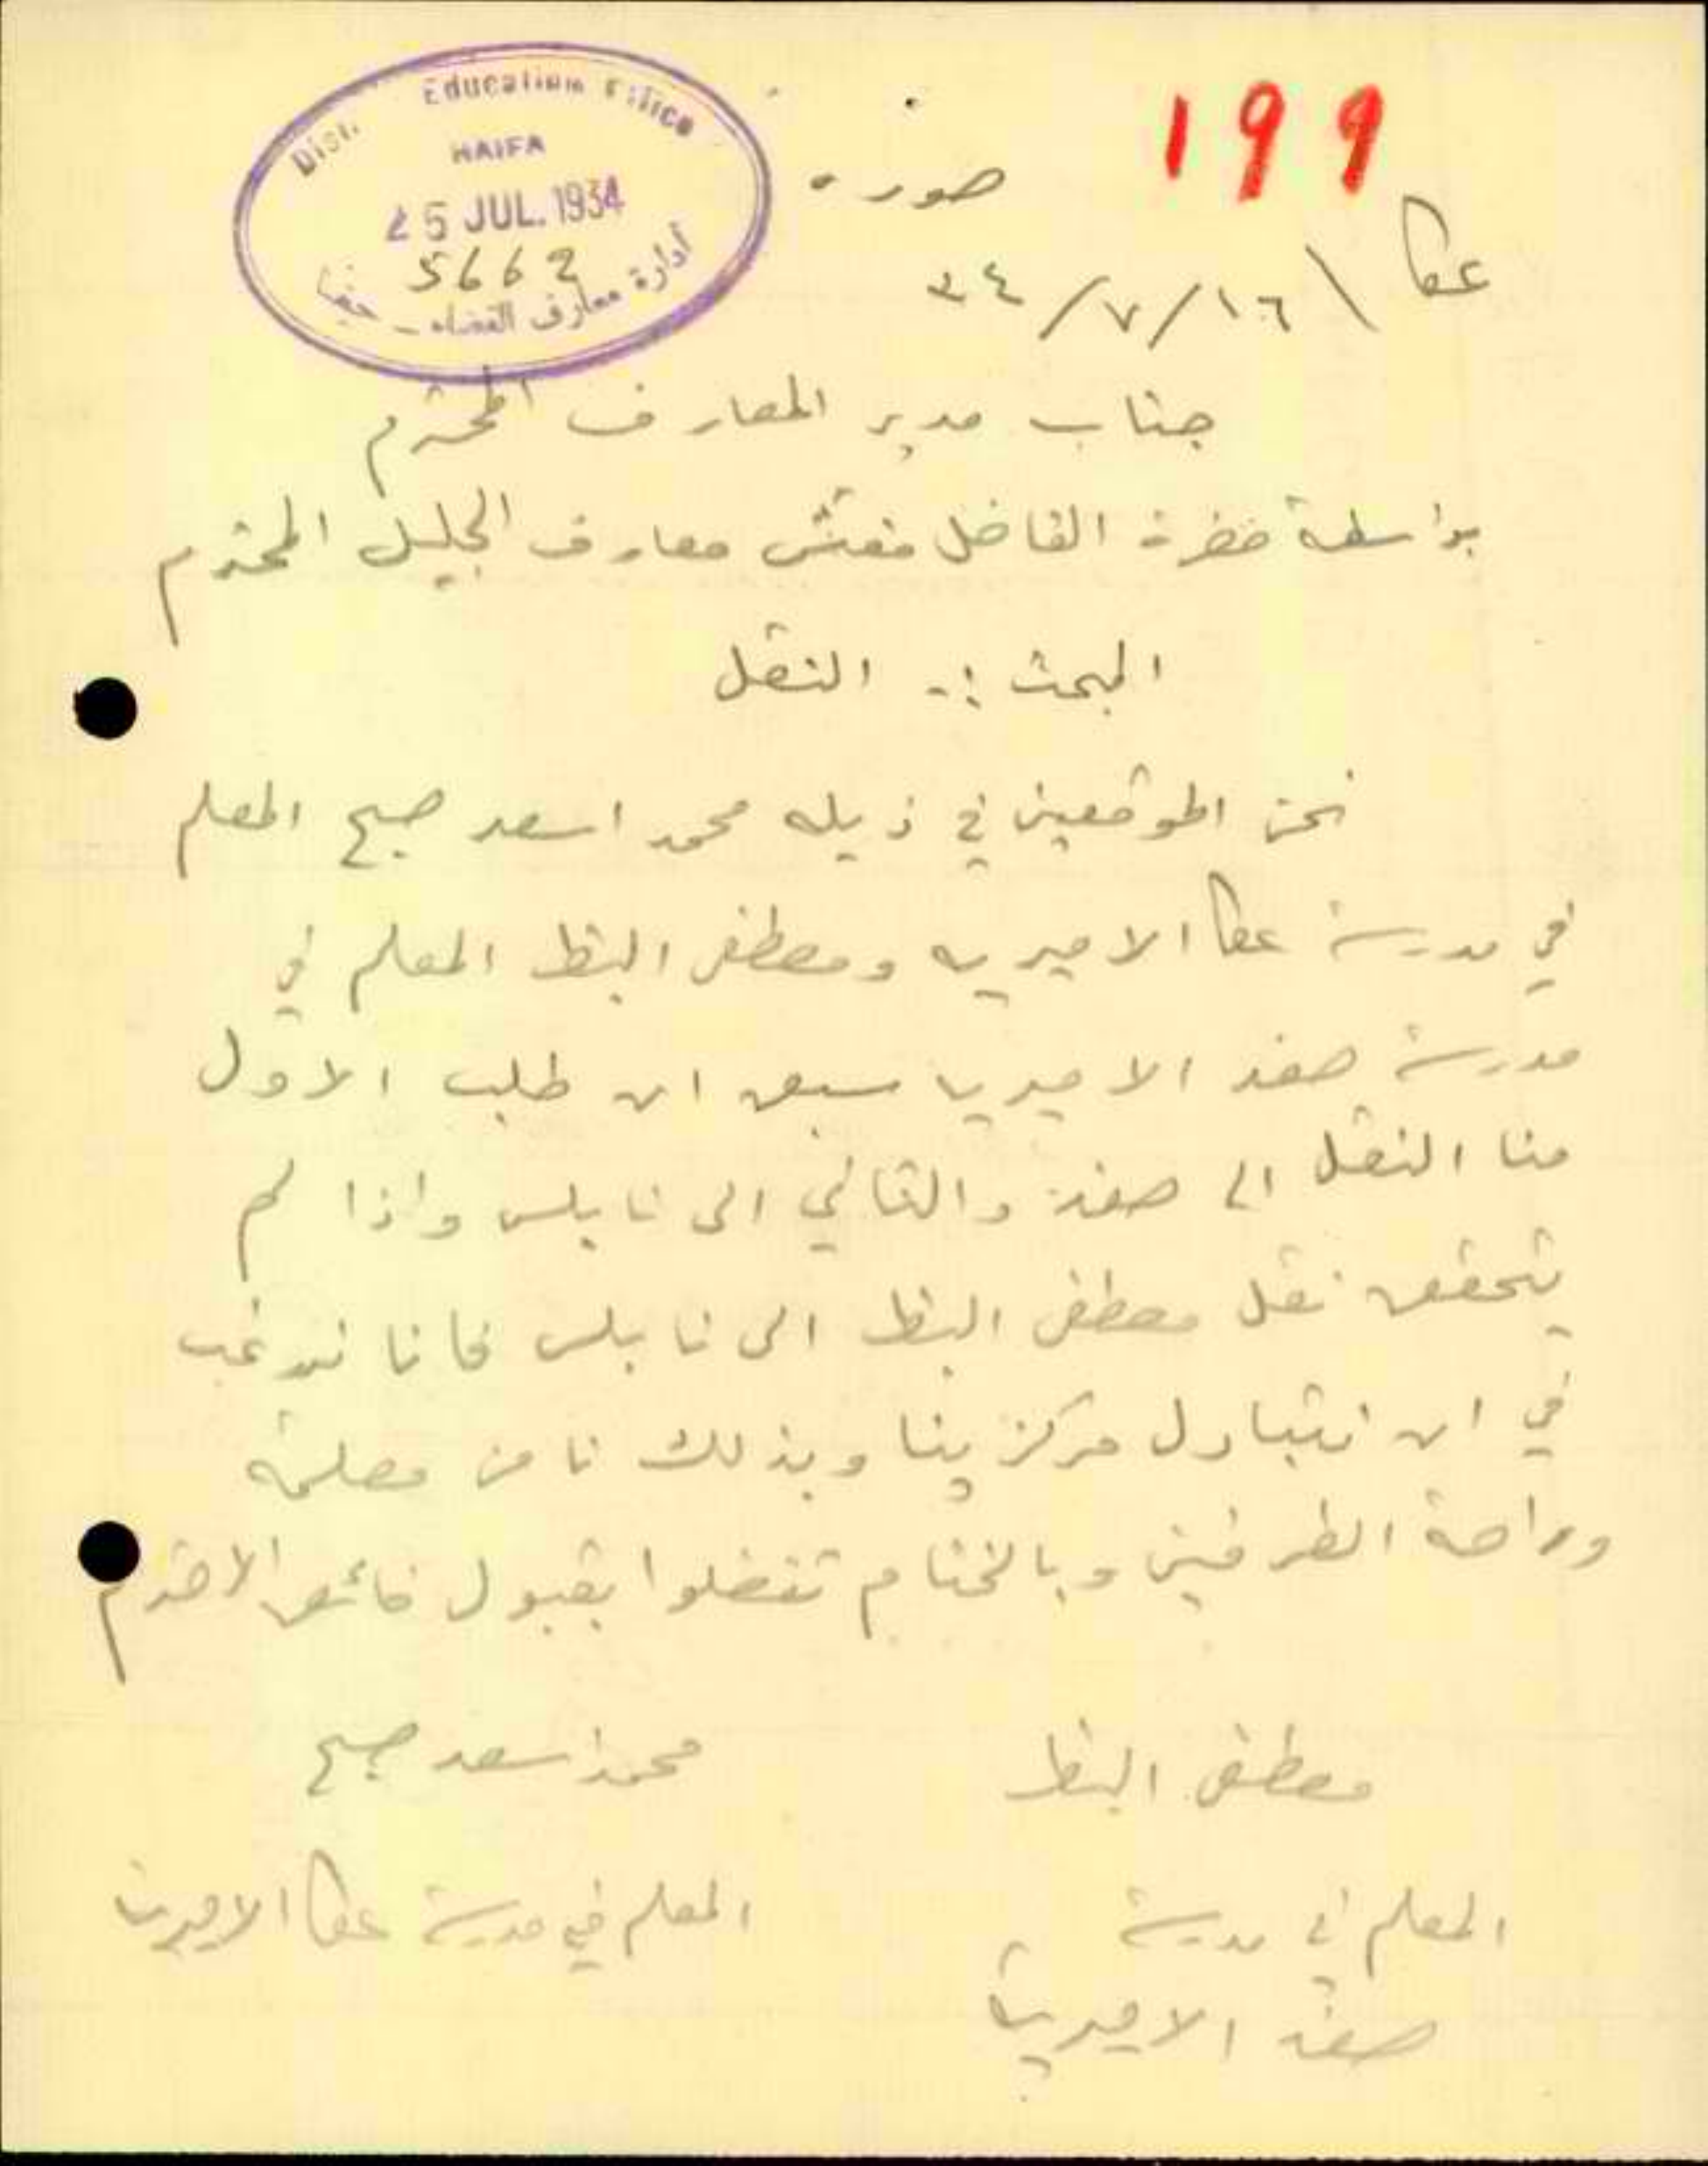 199
Dist. Education Office
HAIFA
25 JUL. 1934
5662
أدارة معارف القضاء - حيفا
صوره
عكا \ ١٦/٧/٣٤
جناب مدير المعارف المحترم
بواسطة حضرة الفاضل مفتش معارف الجليل المحترم
المبحث :- النقل
نحن الموقعين في ذيله محمد اسعد صبح المعلم
في مدرسة عكا الاميريه ومصطفى البظ المعلم في
مدرسة صفد الاميرية سبق ان طلب الاول
منا النقل الى صفد والثاني الى نابلس واذا لم
يتحقق نقل مصطفى البظ الى نابلس فانا نرغب
في ان نتبادل مركزينا وبذلك نامن مصلحة
وراحة الطرفين وبالختام تفضلوا بقبول فائق الاحترام
مصطفى البظ
محمد اسعد صبح
المعلم في مدرسة
صفد الاميرية
المعلم في مدرسة عكا الاميرية